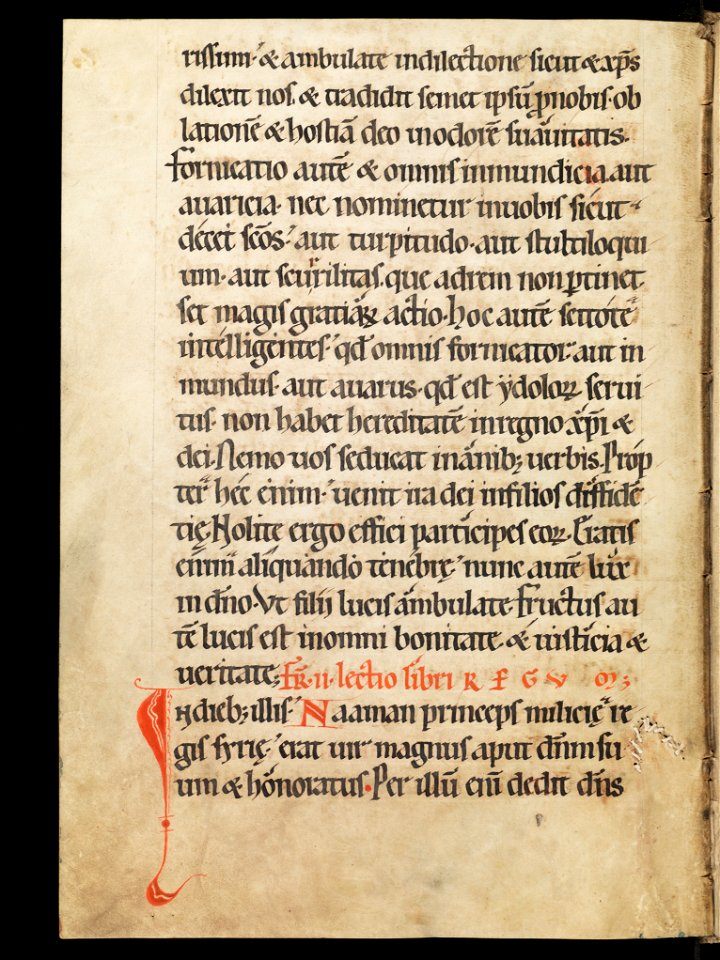 rissimi· & ambulate indilectione sicut & xp̄s
dilexit nos. & tradidit semet ipsū ꝓnobis· ob
lationē & hostiā deo inodorē suauitatis·
Fornicatio autē & omnis inmundicia aut
auaricia· nec nominetur inuobis sicut
decet sc̄os· aut turpitudo· aut stultiloqui
um· aut scurrilitas. que adrem non ꝑtinet·
set magis gratiaꝝ actio· hoc autē scitote
intelligentes· qd̄ omnis fornicator· aut in
mundus· aut auarus· qd̄ est ydoloꝝ serui
tus· non habet hereditatē inregno xp̄i &
dei. Nemo uos seducat inanibꝫ uerbis. Prop
ter hęc enim· uenit ira dei infilios diffidē
tię. Nolite ergo effici participes eoꝝ. Eratis
enim aliquando tenebrę· nunc autē lux
in dn̄o. Vt filij lucis ambulate. Fructus au
tē lucis est inomni bonitate. & iusticia &
ueritate; Fr̄. ii· lectio libri REGVM;
Indiebꝫ illis· Naaman princeps milicię re
gis syrię· erat uir magnus aput dn̄m su
um & honoratus· Per illū eni̅ dedit dn̄s